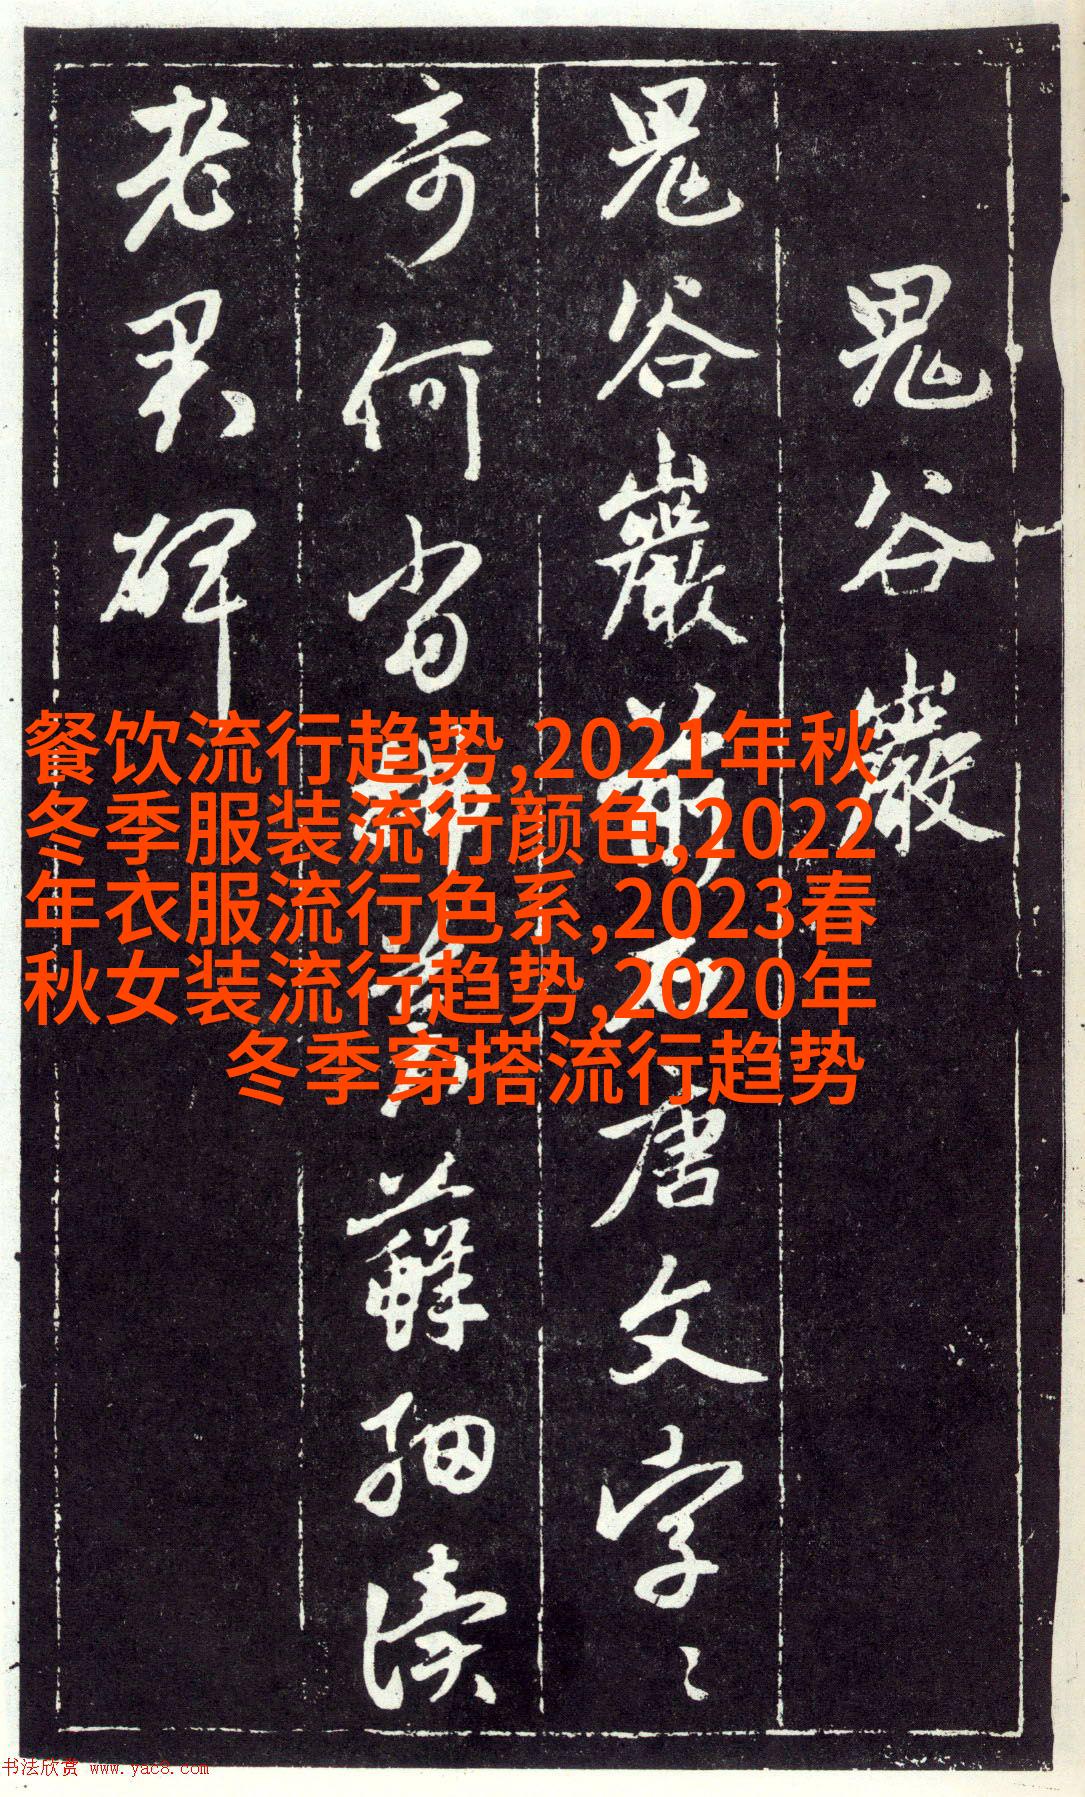 鬼谷巖
鬼谷巖前石唐文字〻
奇何当蘚細讀
老君碑
餐饮流行趋势,2021年秋
冬季服装流行颜色,2022
年衣服流行色系,2023春
秋女装流行趋势,2020年
冬季穿搭流行趋势
书法欣赏 www.yac8.com